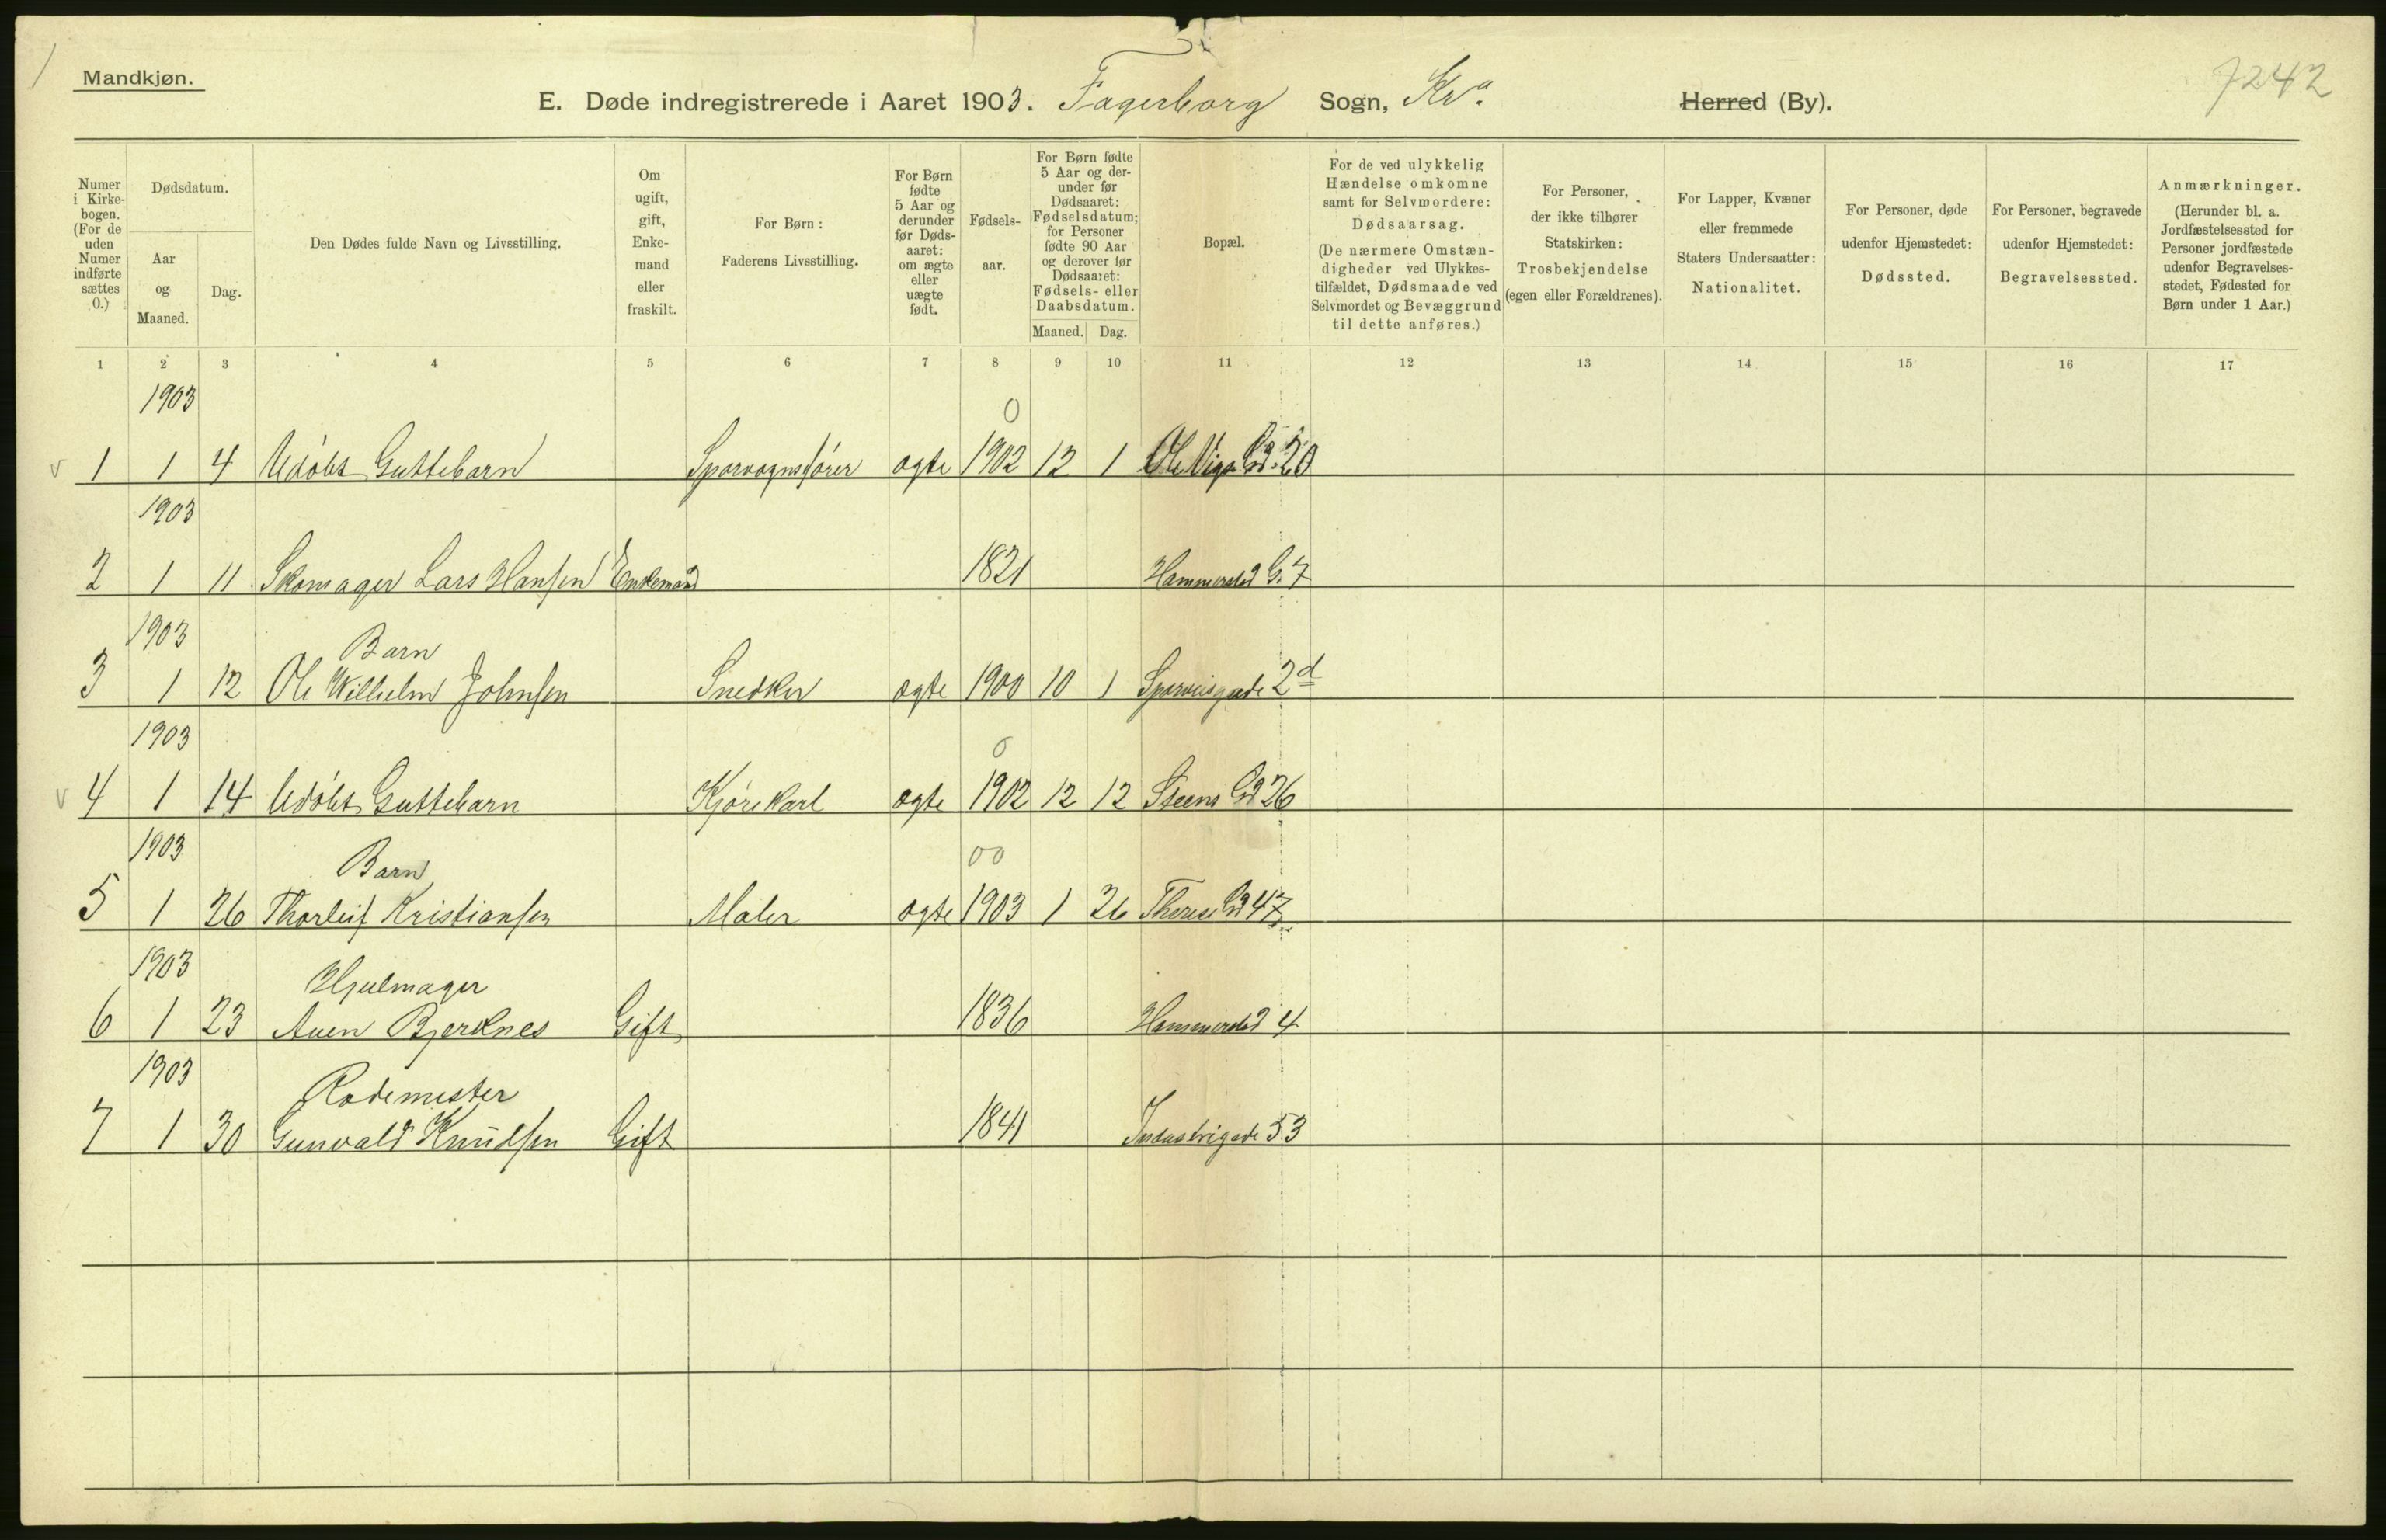 Mandkjøn.
7242
E. Døde indregistrerede i Aaret 1903. Fagerborg Sogn, Kra. Herred (By).
Numer i Kirkebogen. (For de uden Numer indførte sættes 0.)
Dødsdatum.
Aar og Maaned.
Dag.
Den Dødes fulde Navn og Livsstilling.
Om ugift, gift, Enkemand eller fraskilt.
For Børn: Faderens Livsstilling.
For Børn fødte 5 Aar og derunder før Dødsaaret: om ægte eller uægte født.
Fødselsaar.
For Børn fødte 5 Aar og derunder før Dødsaaret: Fødselsdatum; for Personer fødte 90 Aar og derover før Dødsaaret: Fødsels- eller Daabsdatum.
Maaned. Dag.
Bopæl.
For de ved ulykkelig Hændelse omkomne samt for Selvmordere: Dødsaarsag. (De nærmere Omstændigheder ved Ulykkestilfældet, Dødsmaade ved Selvmordet og Bevæggrund til dette anføres.)
For Personer, der ikke tilhører Statskirken: Trosbekjendelse (egen eller Forældrenes).
For Lapper, Kvæner eller fremmede Staters Undersaatter: Nationalitet.
For Personer, døde udenfor Hjemstedet: Dødssted.
For Personer, begravede udenfor Hjemstedet: Begravelsessted.
Anmærkninger. (Herunder bl. a. Jordfæstelsessted for Personer jordfæstede udenfor Begravelsesstedet, Fødested for Børn under 1 Aar.)
1 2 3 4 5 6 7 8 9 10 11 12 13 14 15 16 17
1903 0
1 1 4 Udøbt Guttebarn Sporvognsfører ægte 1902 12 1 Ole Vigs Gd. 20
1903
2 1 11 Skomager Lars Hansen Enkemand 1821 Hammerstad G. 7
1903 Barn
3 1 12 Ole Wilhelm Johnsen Snedker ægte 1900 10 1 Sporveisgade 2d
1903 0
4 1 14 Udøbt Guttebarn Kjørekarl ægte 1902 12 12 Steens Gd 26
1903 Barn 00
5 1 26 Thorleif Kristiansen Maler ægte 1903 1 26 Therese Gd 47
1903 Hjulmager
6 1 23 Auen Bjerknes Gift 1836 Hammerstad 4
1903 Rodemester
7 1 30 Gunvald Knudsen Gift 1841 Industrigade 53